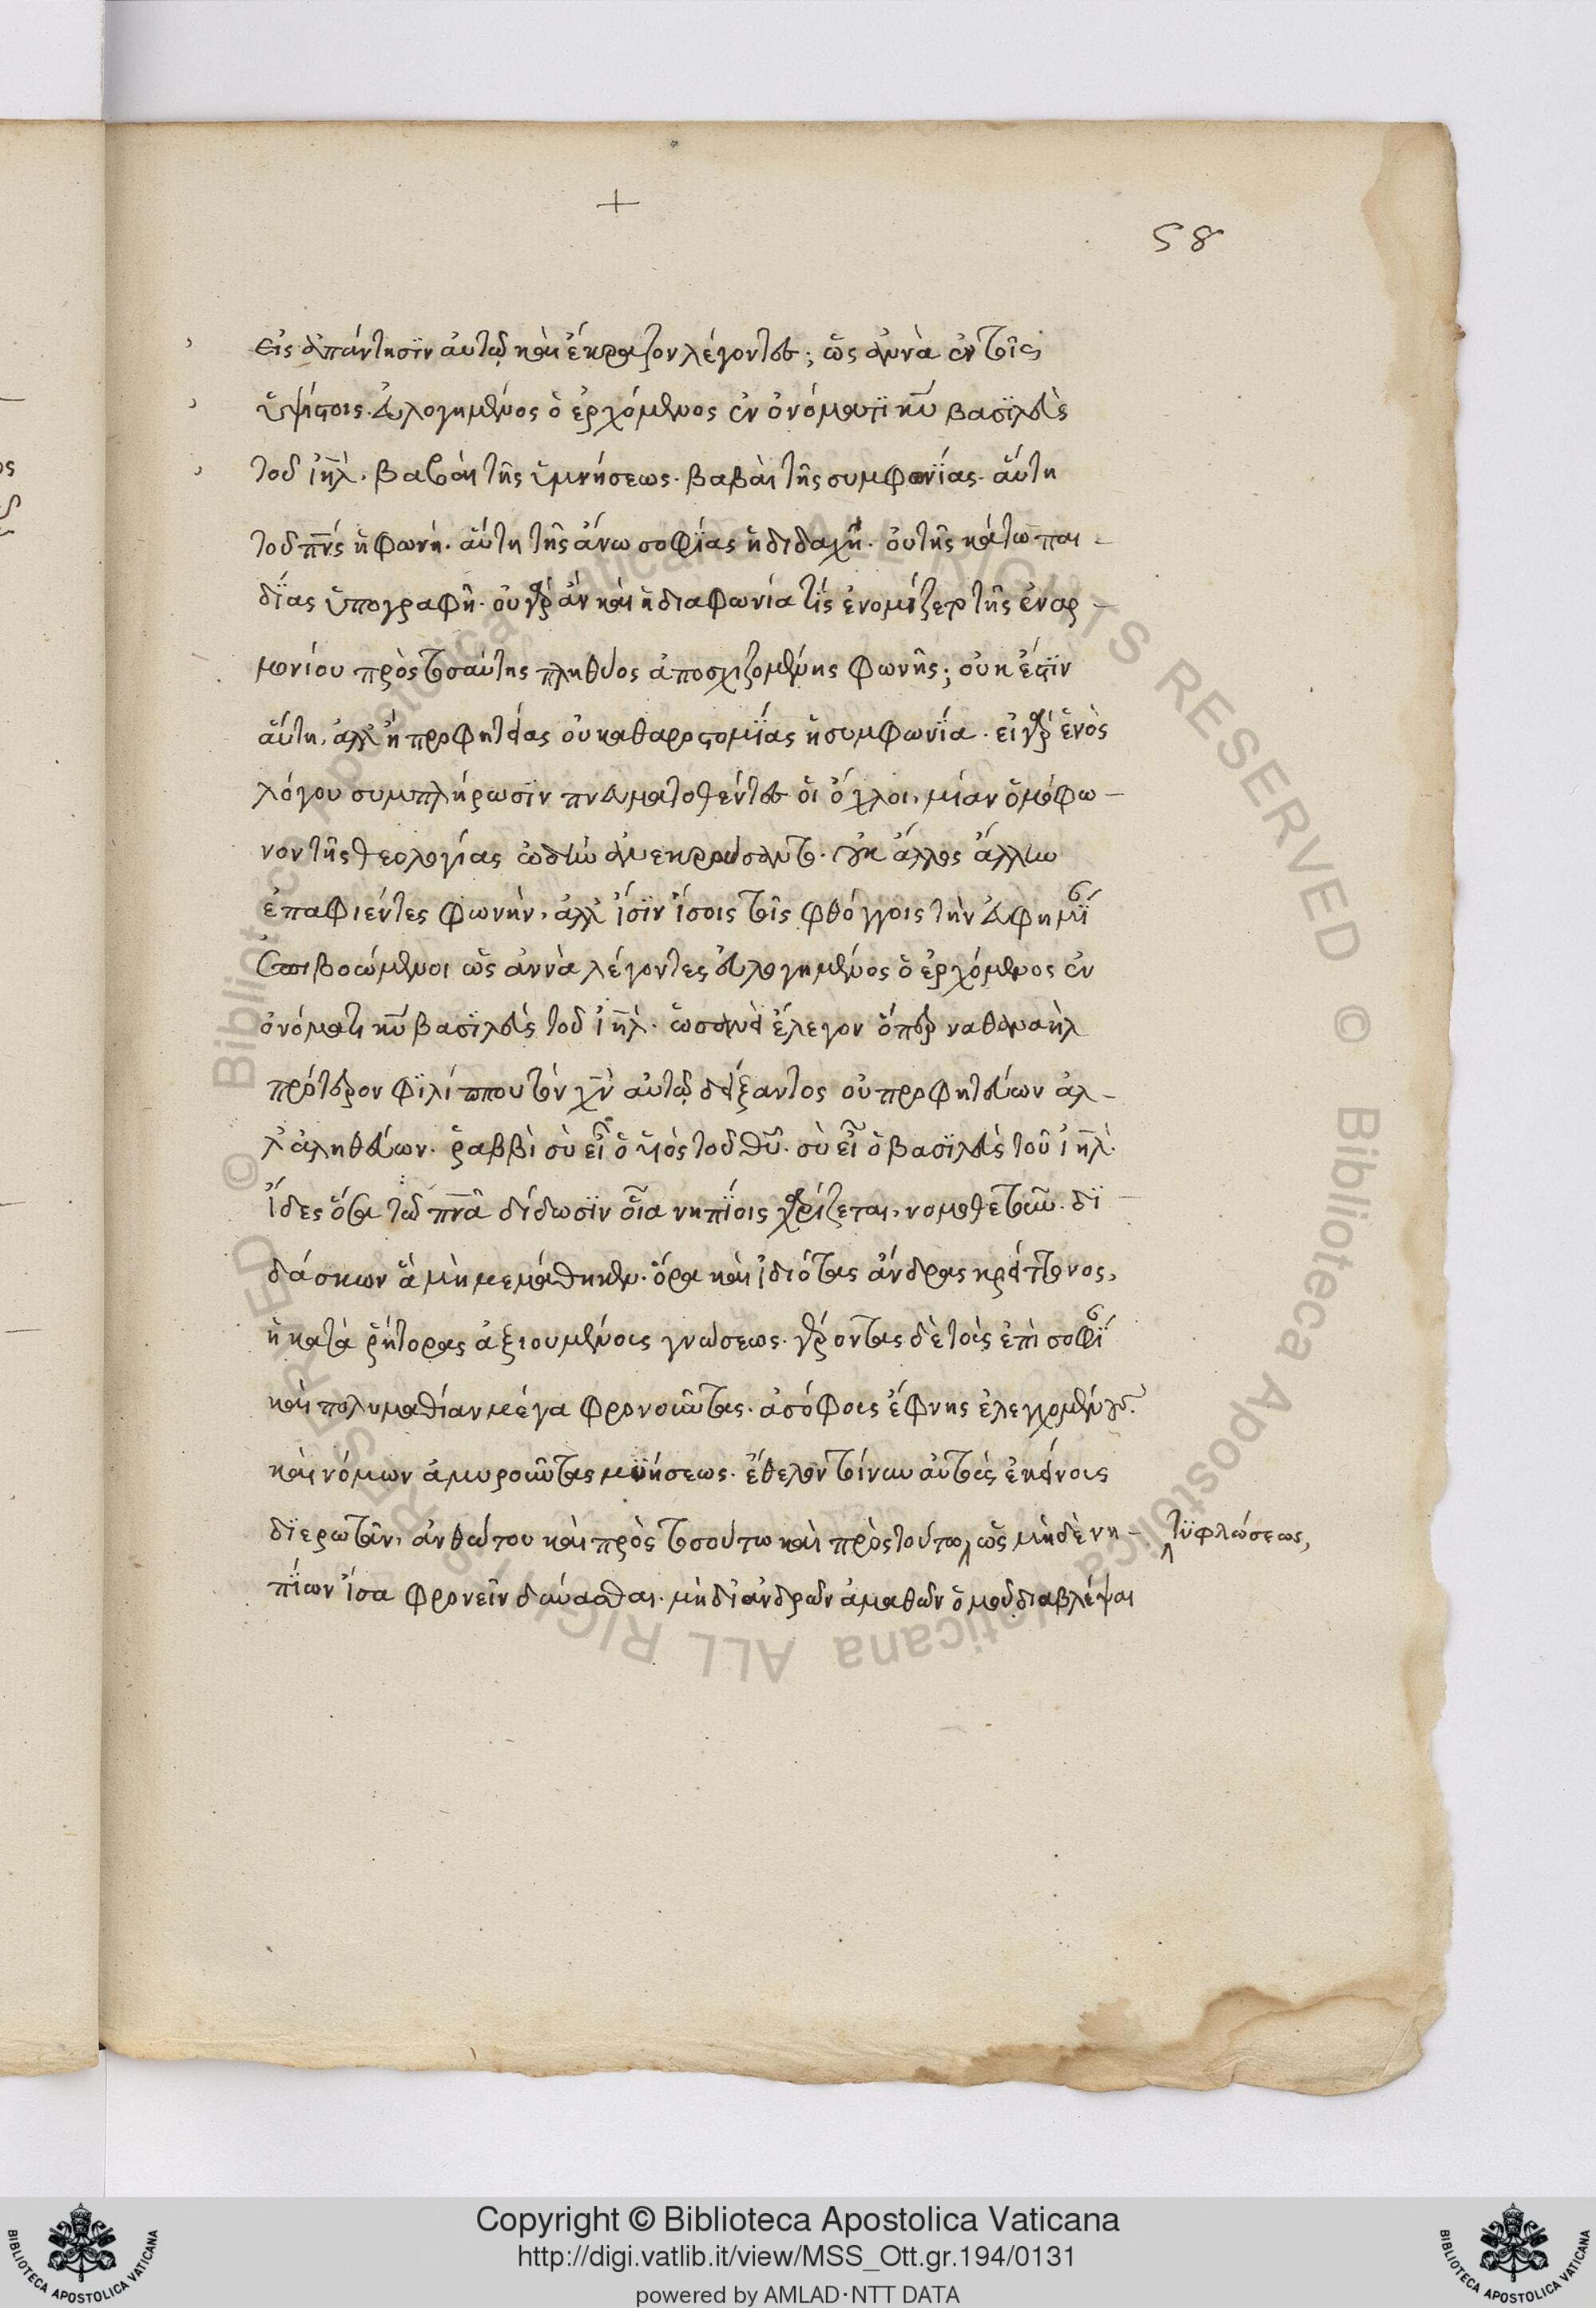 +
58
εἰς ἀπάντησϊν ἀυτῷ καὶ ἔκραζον λέγοντες; ὡς ἀννὰ ἐν τοῖς
ὑψίστοις. ἐυλογημένος ὁ ἐρχόμενος ἐν ὀνόματϊ κ̅υ̅ βασϊλεὺς
τοῦ ἰ̅η̅λ̅. βαβαὶ τῆς ὑμνήσεως. βαβὰι τῆς συμφωνΐας. ἄυτη
τοῦ π̅ν̅ς̅ ἡ φωνή. ἄυτη τῆς ἄνω σοφΐας ἡ διδαχή. ὀυ τῆς κάτω παι-
δΐας ὑπογραφή. ὀυ γὰρ ἂν καὶ ἡ διαφωνία τΐς ἐνομίζετο τῆς ἐναρ-
μονίου πρὸς τοσάυτης πληθύος ἀποσχιζομένης φωνῆς; ὀυκ ἔστϊν
ἄυτη, ἀλλ' ἢ προφητείας ὀυ καθαροστομΐας ἡ συμφωνΐα. εἰ γὰρ ἑνὸς
λόγου συμπλήρωσϊν πνευματοθέντες ὁι ὄχλοι, μίαν ὁμόφω-
νον τῆς θεολογίας ὠδὴν ἀνεκρούσαντο. οὐκ ἄλλος ἄλλην
ἐπαφιέντες φωνὴν, ἀλλ' ἴσϊν ἴσοις τοῖς φθόγγοις τὴν ἐυφημΐ
ἐπιβοώμενοι ὡς ἀννὰ λέγοντες ἐυλογημένος ὁ ἐρχόμενος ἐν
ὀνόματι κ̅υ̅ βασϊλεὺς τοῦ ἰ̅η̅λ̅. ὡσαννὰ ἔλεγον ὅπερ ναθαναὴλ
πρότερον φϊλίππου τὸν χ̅ν̅ ἀυτῷ δείξαντος οὐ προφητεύων ἀλ-
λ' ἀληθεύων. ῥαββὶ σὺ εἶ ὁ ὑιὸς τοῦ θ̅υ̅. σὺ εἶ ὁ βασϊλεὺς τοῦ ἰ̅η̅λ̅.
ἴδες ὅτι τῶ π̅ν̅α̅ δίδωσϊν οἷα νηπΐοις χαρίζεται, νομοθετῶν. δϊ
δάσκων ἃ μὴ μεμάθηκεν. ὅρα καὶ ἰδιότας ἄνδρας κρείττονος,
ἢ κατὰ ῥήτορας ἀξιουμένους γνώσεως. γέροντας δὲ τοὺς ἐπὶ σοφΐ
καὶ πολυμαθίαν μέγα φρονοῦντας. ἀσόφους ἔφνης ἐλεγχομένους.
καὶ νόμων ἀμυροῦντας μυήσεως. ἔθελον τοίνυν ἀυτοὺς ἐκείνους
δϊερωτᾶν, ἀνθώτου καὶ πρὸς τοσούτω καὶ πρὸς τούτω ὡς μηδὲ νη- τϋφλώσεως,
πΐων ἴσα φρονεῖν δύνασθαι. μὴ δι' ἀνδρῶν ἀμαθῶν ὁμοῦ διαβλέψαι
Copyright © Biblioteca Apostolica Vaticana
http://digi.vatlib.it/view/MSS_Ott.gr.194/0131
powered by AMLAD·NTT DATA